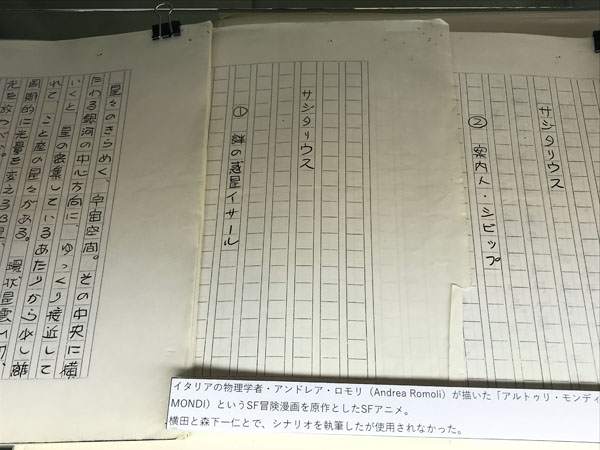 星々のきらめく、宇宙空間。その中央に横
たわる銀河の中心方向に、ゆっくり接近して
いくと、星の密集しているあたりから少し離
れて、こと座の星々がある。
周期的に光量を変えるβ星、環状星雲
光を放つ
サジタリウス
① 謎の惑星イサール
サジタリウス
② 案内人・シビップ
イタリアの物理学者・アンドレア・ロモリ（Andrea Romoli）が描いた「アルトゥリ・モンディ
MONDI）というSF冒険漫画を原作としたSFアニメ。
横田と森下一仁とで、シナリオを執筆したが使用されなかった。